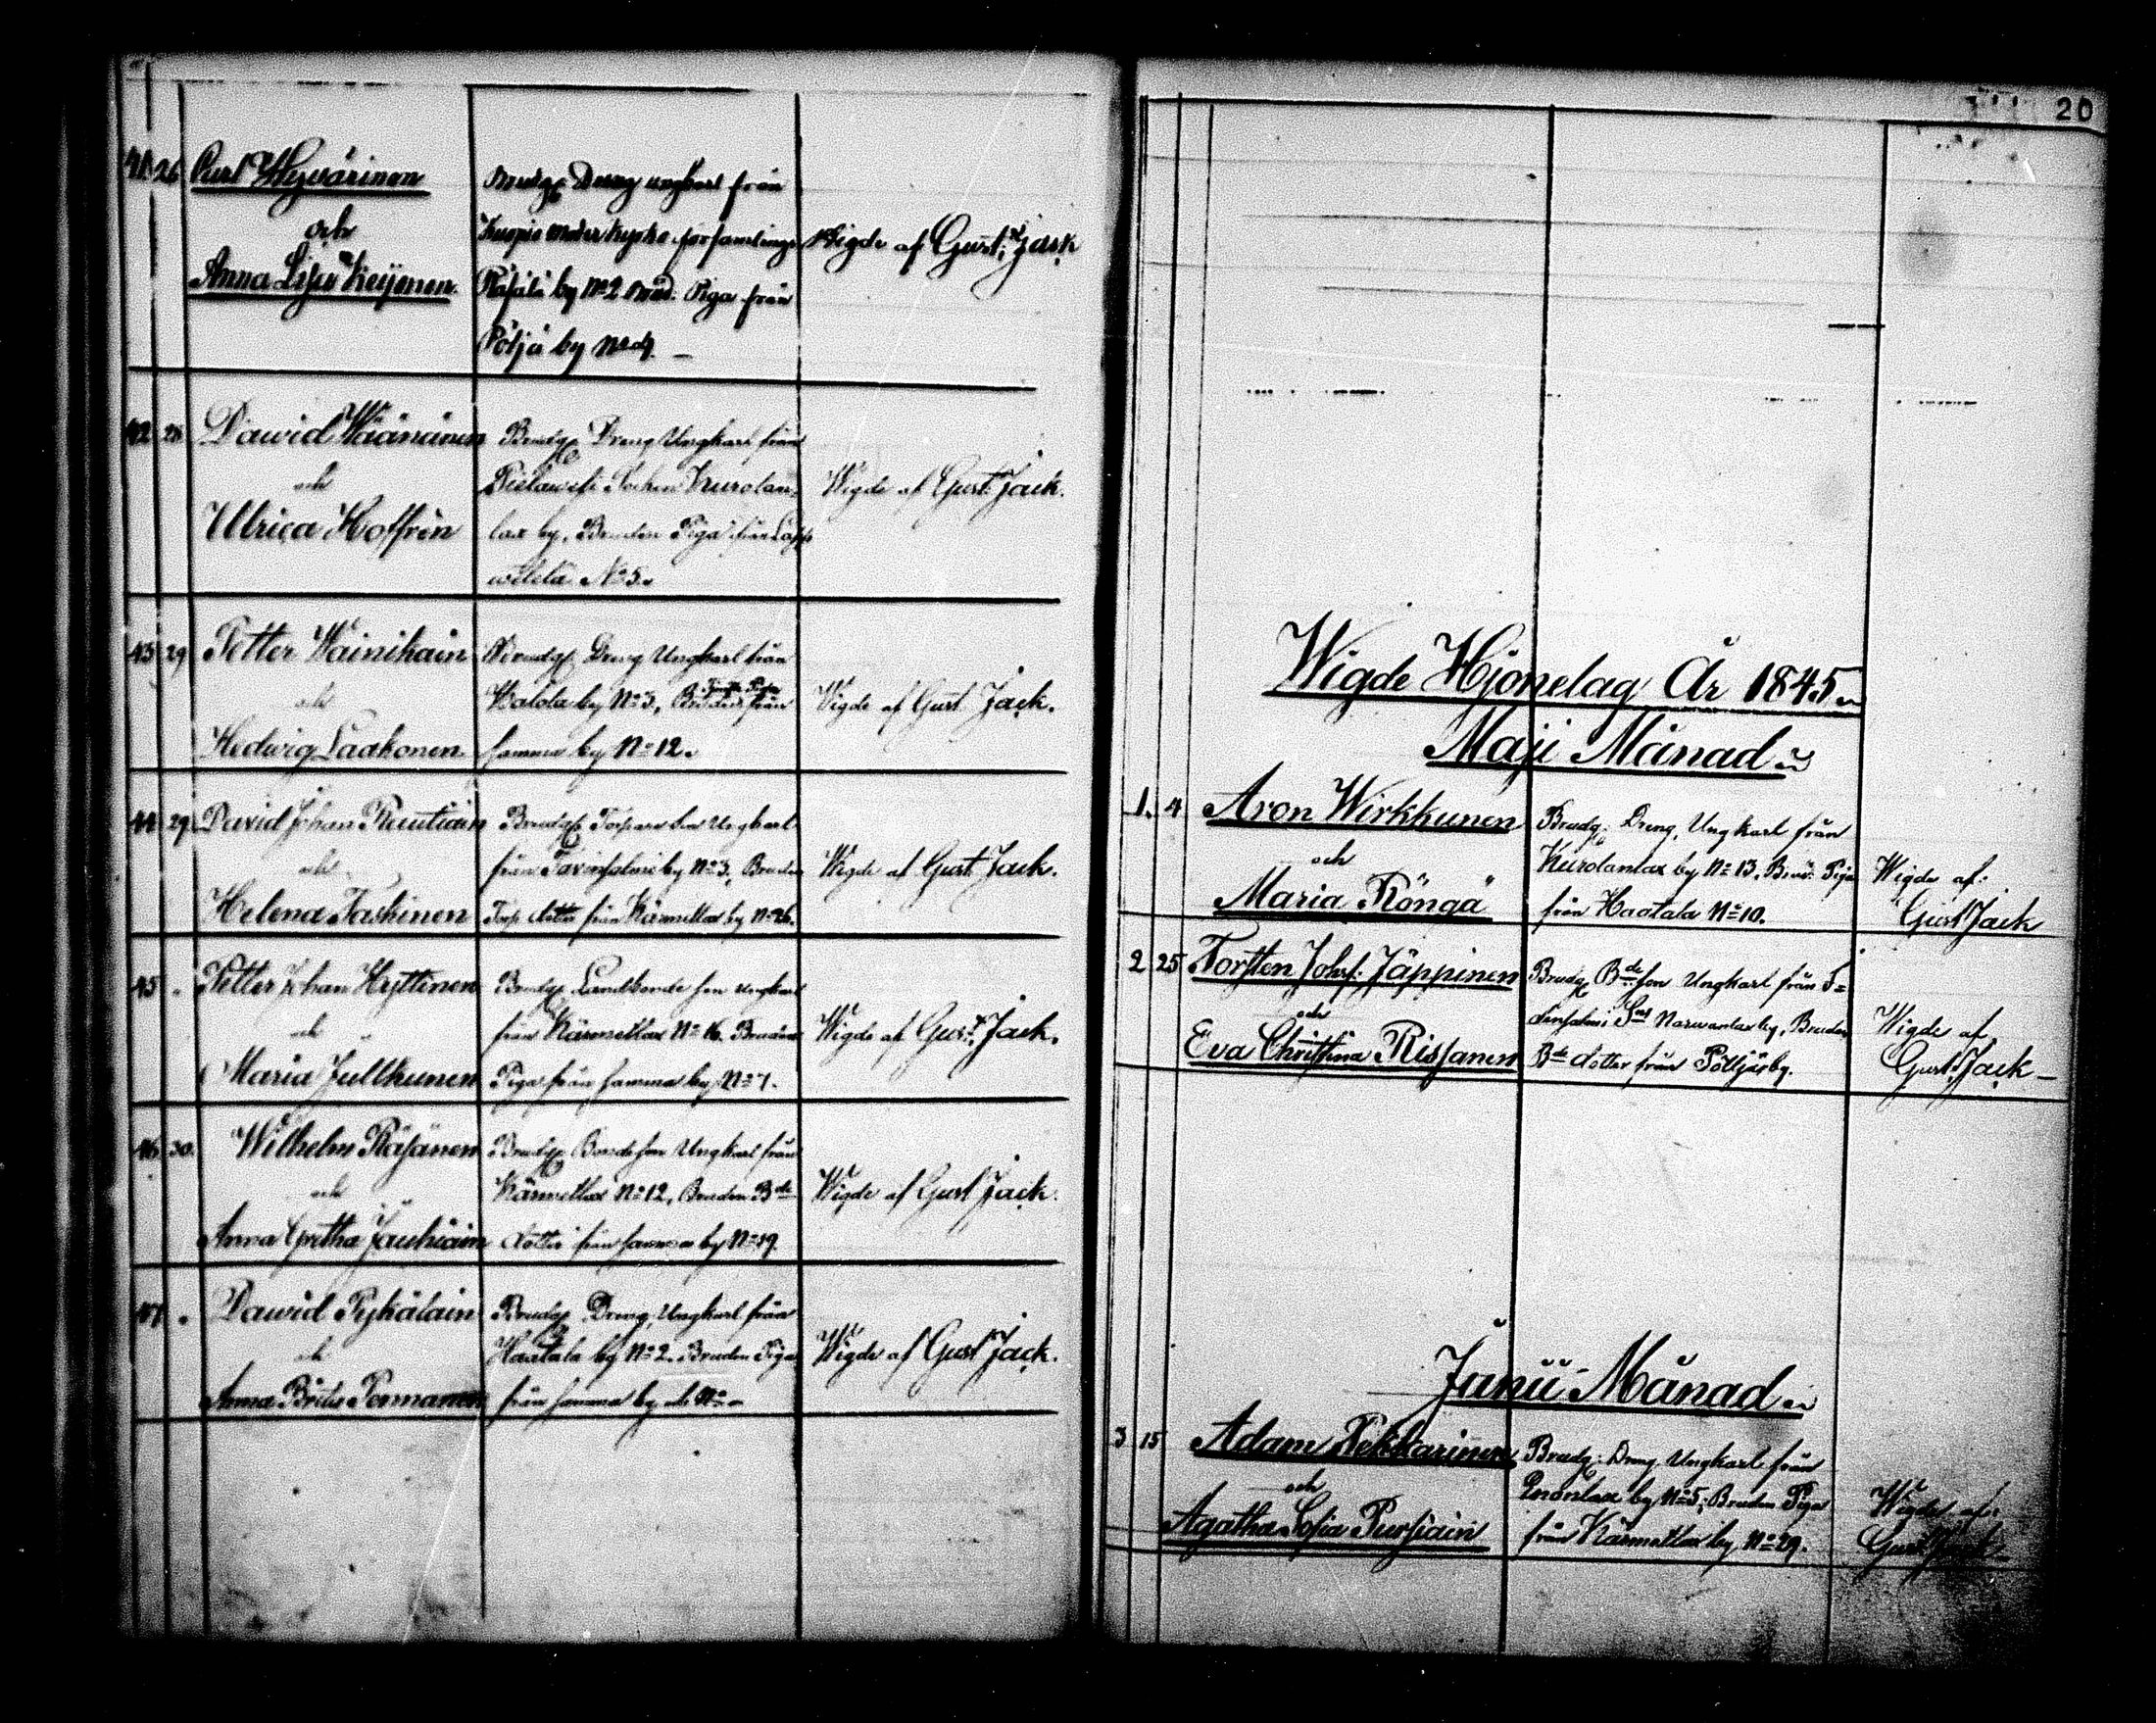 41. 26 Carl Hyvärinen
och
Anna Lisa Keijonen
Brudg. Dreng ungkarl från
Kuopio moder kyrko församlings
Räsälä by No 2 Brud. Piga från
Pöljä by No 4. –
Wigde af Gust: Jack
42 28 Dawid Wäänänen
och
Ulrica Hoffrén
Brudg. Dreng Ungkarl från
Pielawesi Sochen Kurolan-
lax by, Bruden Piga från Lapp
wetelä No 5.
Wigde af Gust. Jack.
43 29 Petter Wäinikain
och
Hedwig Laakonen
Brudg. Dreng Ungkarl från
by No 3, Bruden från
samma by No 12.
Wigde af Gust Jack.
44 29. David Johan Rautiain
och
Helena Taskinen
Brudg. Torpare Son Ungkarl
från Tavinsalmi by No 3, Bruden
Torp dotter från Kärmetlax by No 26.
Wigde af Gust. Jack.
45 " Petter Johan Hyttinen
och
Maria Jullkunen
Brudg. Landbonde son ungkarl
från Kärmetlax No 16. Bruden
Piga från samma by No 7.
Wigde af Gust. Jack.
46 30. Wilhelm Räsänen
och
Anna Gretha Jauhiain
Brudg. Bonde son Ungkarl från
Kärmetlax No 12, Bruden Bde
dotter från samma by No 19.
Wigde af Gust Jack.
47 " Dawid Pykäläin
och
Anna Brita Permanen
Brudg. Dreng, Ungkarl från
Haatala by No 2. Bruden Piga
från samma by No –
Wigde af Gust Jack.
20
Wigde Hjonelag År 1845
Maji Månad
1. 4 Aron Wirkkunen
och
Maria Röngä
Brudg: Dreng, Ungkarl från
Kurolanlax by No 13. Brud: Piga
från Haatala No 10.
Wigde af:
Gust Jack
2 25 Torsten Johs: Jäppinen
och
Eva Christina Rissanen
Brudg. Bde son Ungkarl från I=
densalmi Sn Narwanlax by, Bruden
Bde dotter från Pölljä by.
Wigde af,
Gust. Jack –
Junii Månad
3 15 Adam Pekkarinen
och
Agatha Sofia Pursiain
Brudg: Dreng Ungkarl från
Enonlax by No 5; Bruden Piga
från Kärmetlax by No 29.
Wigde af:
Gust Jack